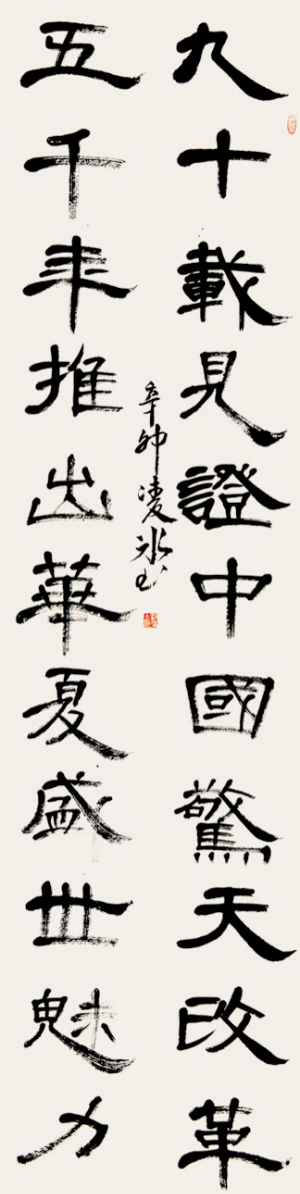 九十載見證中國驚天改革
五千年推出華夏盛世魅力
辛卯凌冰书